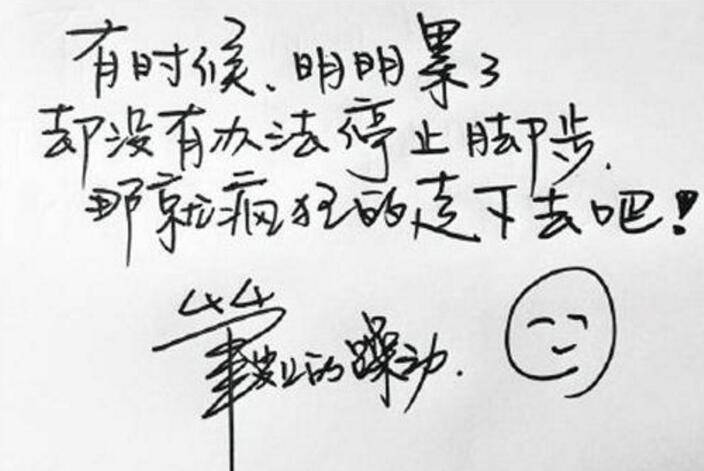 有时候、明明累了
却没有办法停止脚步.
那就疯狂的走下去吧!
筆 的躁动.